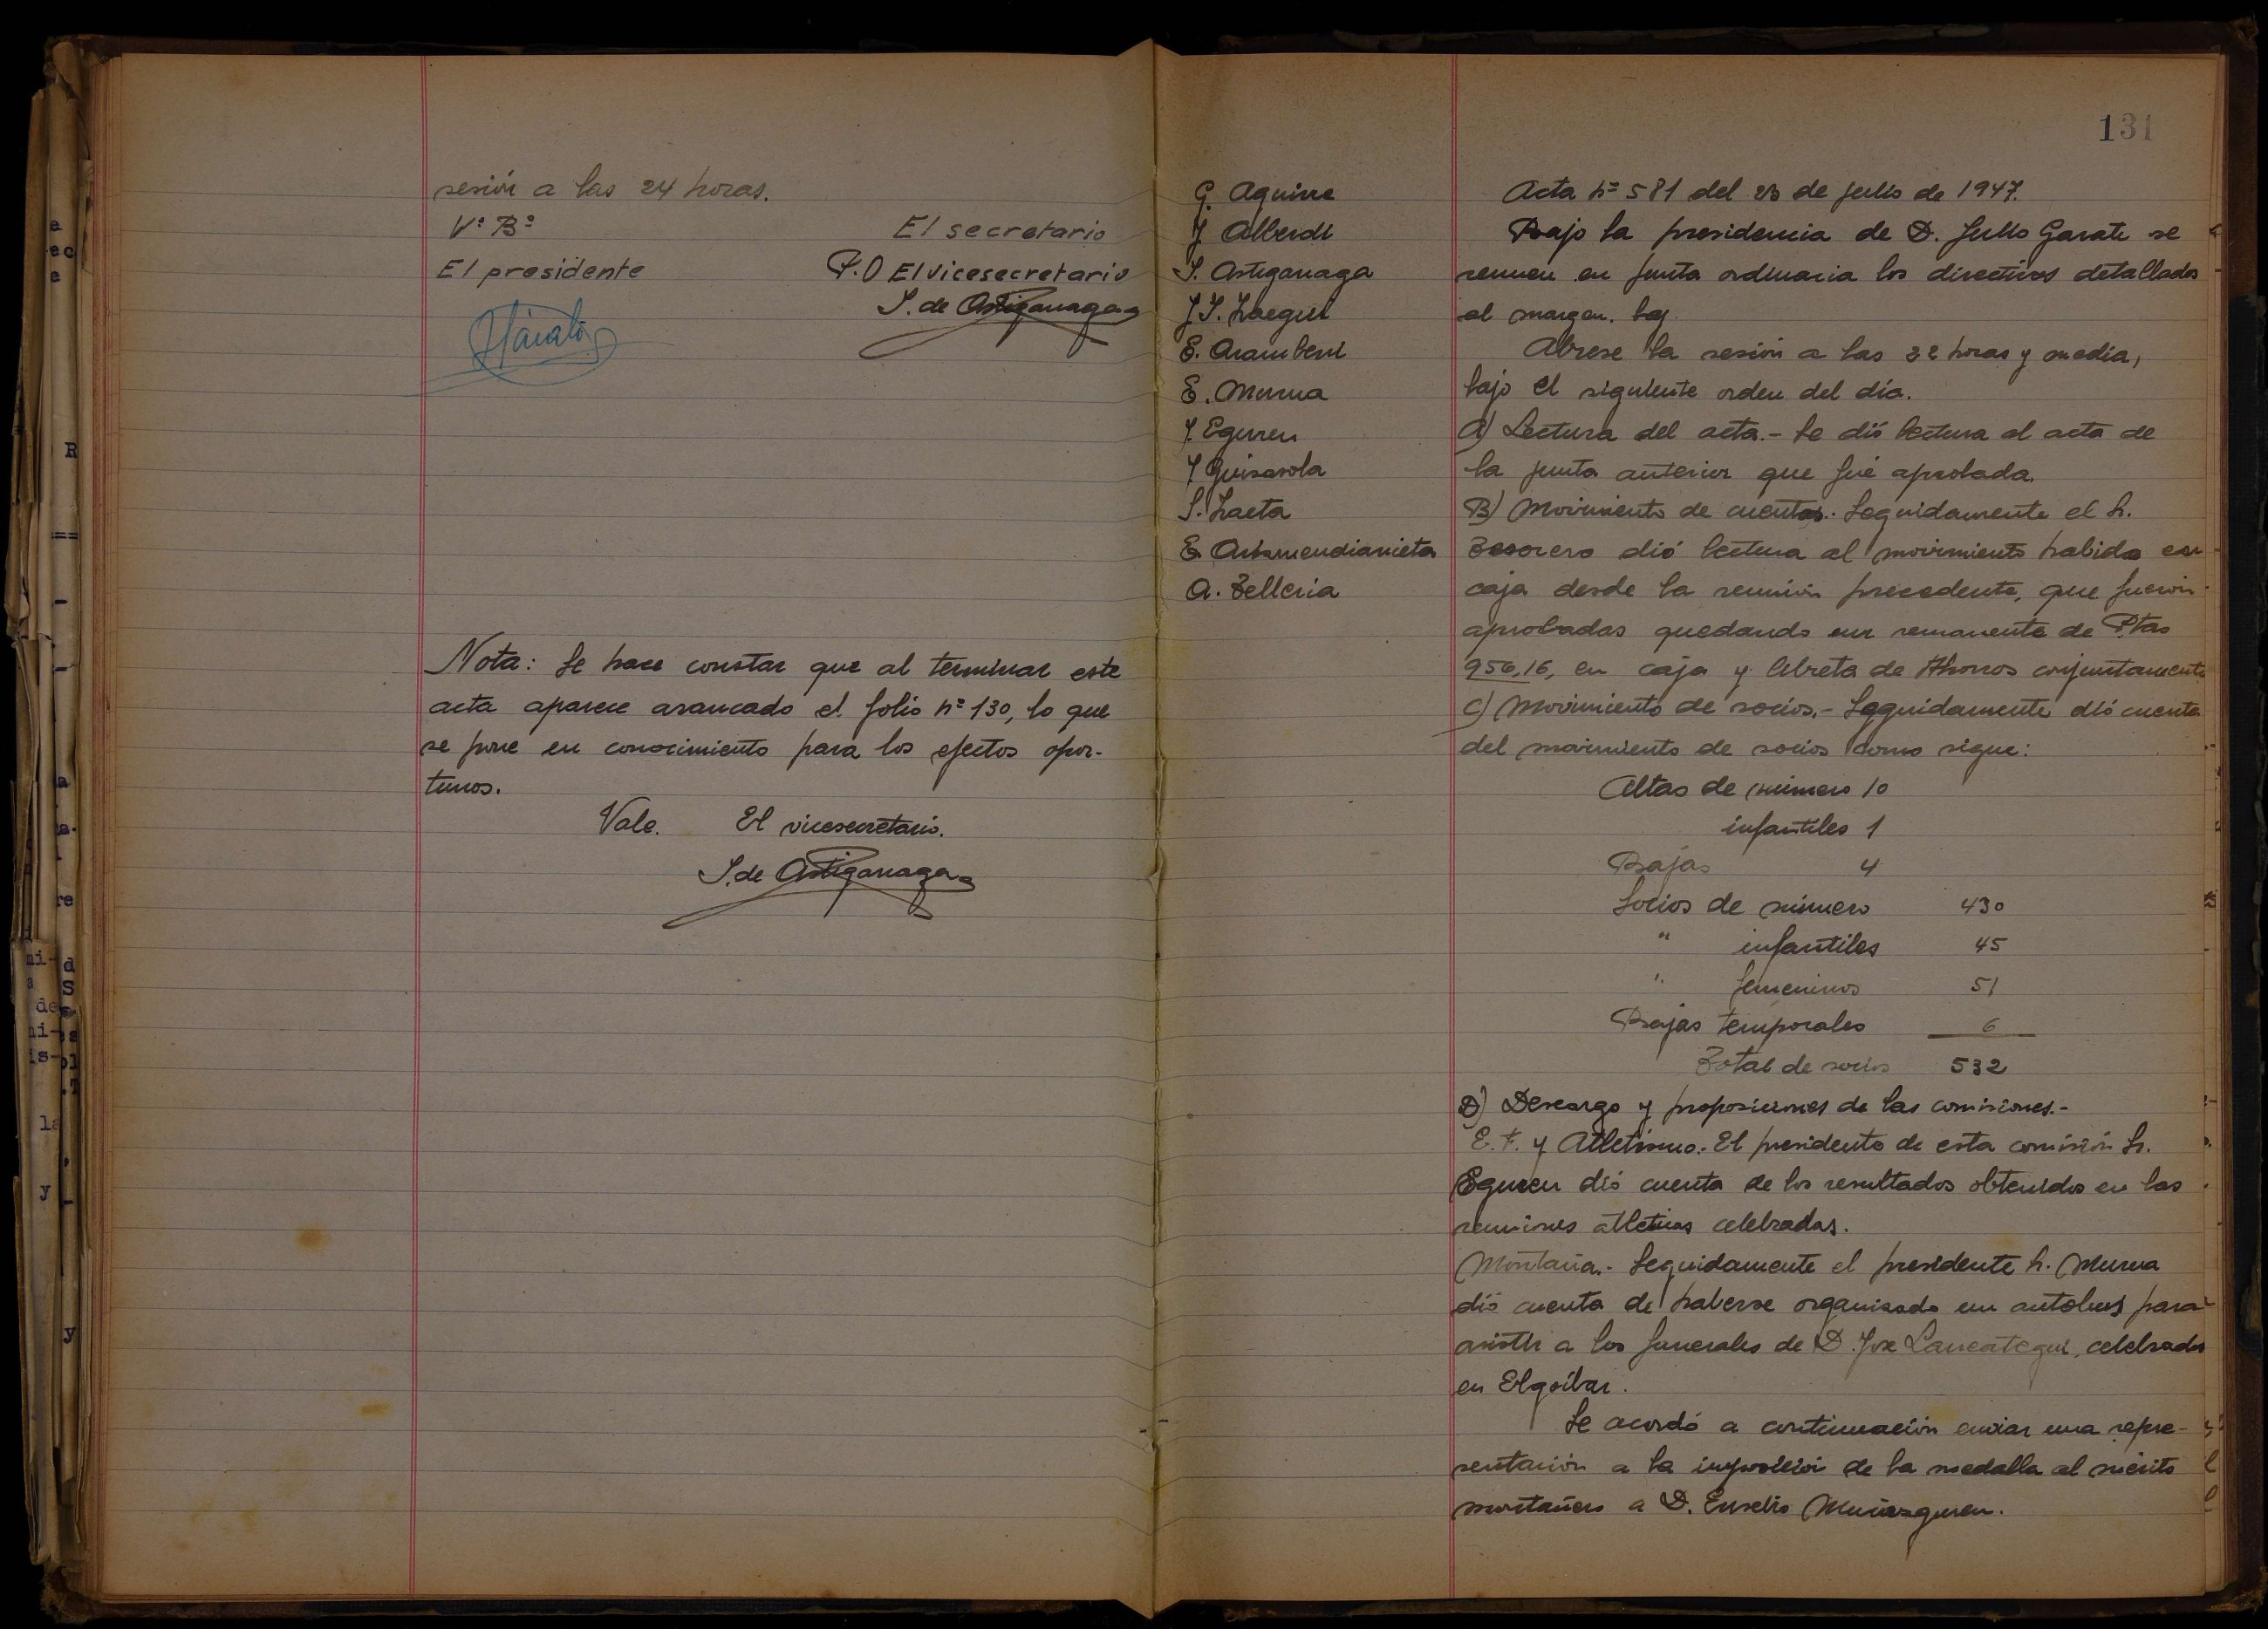 sesión a las 24 horas.
Vº Bº
El secretario
El presidente
P.O El vicesecretario
S. de Astigarraga
Nota: Se hace constar que al terminar este
acta aparece arancado el folio nº 130, lo que
se pone en conocimiento para los efectos opor-
tunos.
Vale. El vicesecretario.
S. de Astigarraga
131
G. Aguirre
J Alberdi
S. Astigarraga
J.S.
E. Aramberri
E. Murua
J. Eguren
J Guisasola
S. Laeta
E. Arismendiarrieta
A. Telleria
Acta nº 581 del de Julio de 1947.
Bajo la presidencia de D. Julio Garate se
reunen en junta ordinaria los directivos detallados
al margen.
Abrese la sesión a las 22 horas y media,
bajo el siguiente orden del día.
A) Lectura del acta.- Se dió lectura al acta de
la junta anterior que fué aprobada.
B) Movimiento de cuentas.- Seguidamente el Sr.
Tesorero dió lectura al movimiento habido en
caja desde la reunión precedente, que fueron
aprobadas quedando un remanente de Ptas
956,16, en caja y libreta de Ahorros conjuntamente
C) Movimiento de socios.- Seguidamente dió cuenta
del movimiento de socios como sigue:
Altas de número 10
infantiles 1
Bajas 4
Socios de número 430
" infantiles 45
" femeninos 51
Bajas temporales 6
Total de socios 532
D) Descargo y proposiciones de las comisiones.-
E.F. y Atletismo.- El presidente de esta comisión Sr.
Eguren dió cuenta de los resultados obtenidos en las
reuniones atleticas celebradas.
Montaña.- Seguidamente el presidente Sr. Murua
dió cuenta de haberse organizado un autobus para
asistir a los funerales de D. Jose celebrados
en Elgoibar.
Se acordó a continuación enviar una repre-
sentación a la imposición de la medalla al mérito
montañero a D. Eusebio